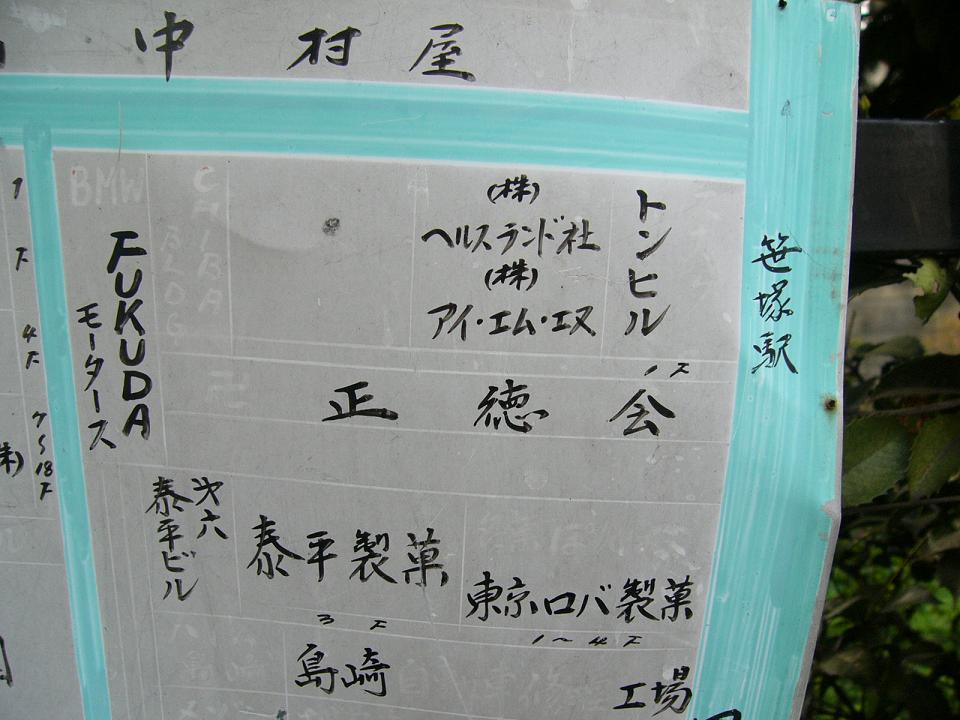 中村屋
(株)
ヘルスランド社
(株)
アイ・エム・エヌ
トンビル
笹塚駅
FUKUDA
モータース
BMW
1F
正徳会
4F
7〜18F
株)
第六
泰平ビル
泰平製菓
東京ロバ製菓
3F
1〜4F
島崎
工場